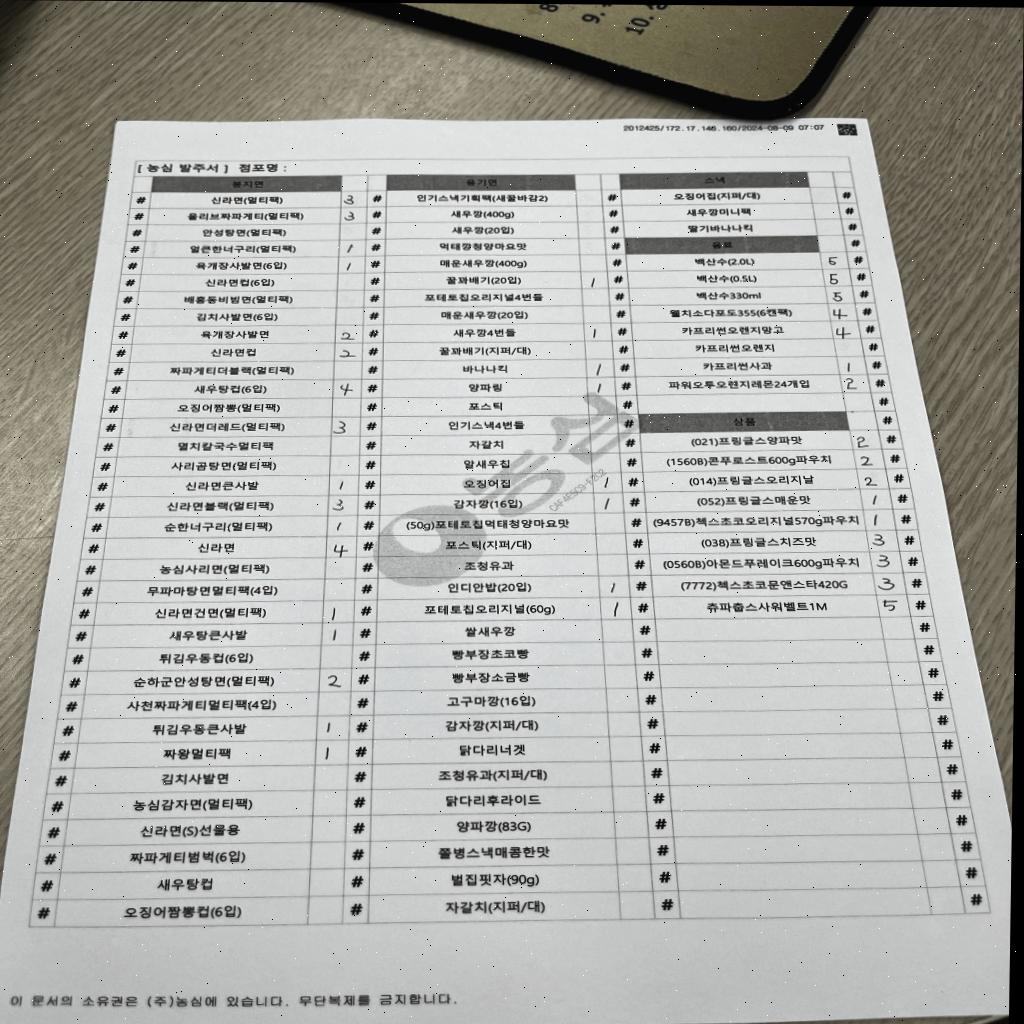 8
9.
10.
2012425/172.17.146.160/2024-08-09 07:07
[ 농심 발주서 ] 점포명 :
봉지면 용기면 스낵
# 신라면(멀티팩) 3 # 인기스낵기획팩(새꿀바감2) # 오징어집(지퍼/대) #
# 올리브짜파게티(멀티팩) 3 # 새우깡(400g) # 새우깡미니팩 #
# 안성탕면(멀티팩) # 새우깡(20입) # 딸기바나나킥 #
# 얼큰한너구리(멀티팩) 1 # 먹태깡청양마요맛 # 음료 #
# 육개장사발면(6입) 1 # 매운새우깡(400g) # 백산수(2.0L) 5 #
# 신라면컵(6입) # 꿀꽈배기(20입) 1 # 백산수(0.5L) 5 #
# 배홍동비빔면(멀티팩) # 포테토칩오리지널4번들 # 백산수330ml 5 #
# 김치사발면(6입) # 매운새우깡(20입) # 웰치소다포도355(6캔팩) 4 #
# 육개장사발면 2 # 새우깡4번들 1 # 카프리썬오렌지망고 4 #
# 신라면컵 2 # 꿀꽈배기(지퍼/대) # 카프리썬오렌지 #
# 짜파게티더블랙(멀티팩) # 바나나킥 1 # 카프리썬사과 1 #
# 새우탕컵(6입) 4 # 양파링 1 # 파워오투오렌지레몬24개입 2 #
# 오징어짬뽕(멀티팩) # 포스틱 # #
# 신라면더레드(멀티팩) 3 # 인기스낵4번들 # 상품 #
# 멸치칼국수멀티팩 # 자갈치 # (021)프링글스양파맛 2 #
# 사리곰탕면(멀티팩) # 알새우칩 # (1560B)콘푸로스트600g파우치 2 #
# 신라면큰사발 1 # 오징어집 1 # (014)프링글스오리지날 2 #
# 신라면블랙(멀티팩) 3 # 감자깡(16입) 1 # (052)프링글스매운맛 1 #
# 순한너구리(멀티팩) 1 # (50g)포테토칩먹태청양마요맛 # (9457B)첵스초코오리지널570g파우치 1 #
# 신라면 4 # 포스틱(지퍼/대) # (038)프링글스치즈맛 3 #
# 농심사리면(멀티팩) # 조청유과 # (0560B)아몬드푸레이크600g파우치 3 #
# 무파마탕면멀티팩(4입) # 인디안밥(20입) 1 # (7772)첵스초코문앤스타420G 3 #
# 신라면건면(멀티팩) 1 # 포테토칩오리지널(60g) 1 # 츄파춥스사워벨트1M 5 #
# 새우탕큰사발 1 # 쌀새우깡 # #
# 튀김우동컵(6입) # 빵부장초코빵 # #
# 순하군안성탕면(멀티팩) 2 # 빵부장소금빵 # #
# 사천짜파게티멀티팩(4입) # 고구마깡(16입) # #
# 튀김우동큰사발 1 # 감자깡(지퍼/대) # #
# 짜왕멀티팩 1 # 닭다리너겟 # #
# 김치사발면 # 조청유과(지퍼/대) # #
# 농심감자면(멀티팩) # 닭다리후라이드 # #
# 신라면(S)선물용 # 양파깡(83G) # #
# 짜파게티범벅(6입) # 쫄병스낵매콤한맛 # #
# 새우탕컵 # 벌집핏자(90g) # #
# 오징어짬뽕컵(6입) # 자갈치(지퍼/대) # #
농심
이 문서의 소유권은 (주)농심에 있습니다. 무단복제를 금지합니다.